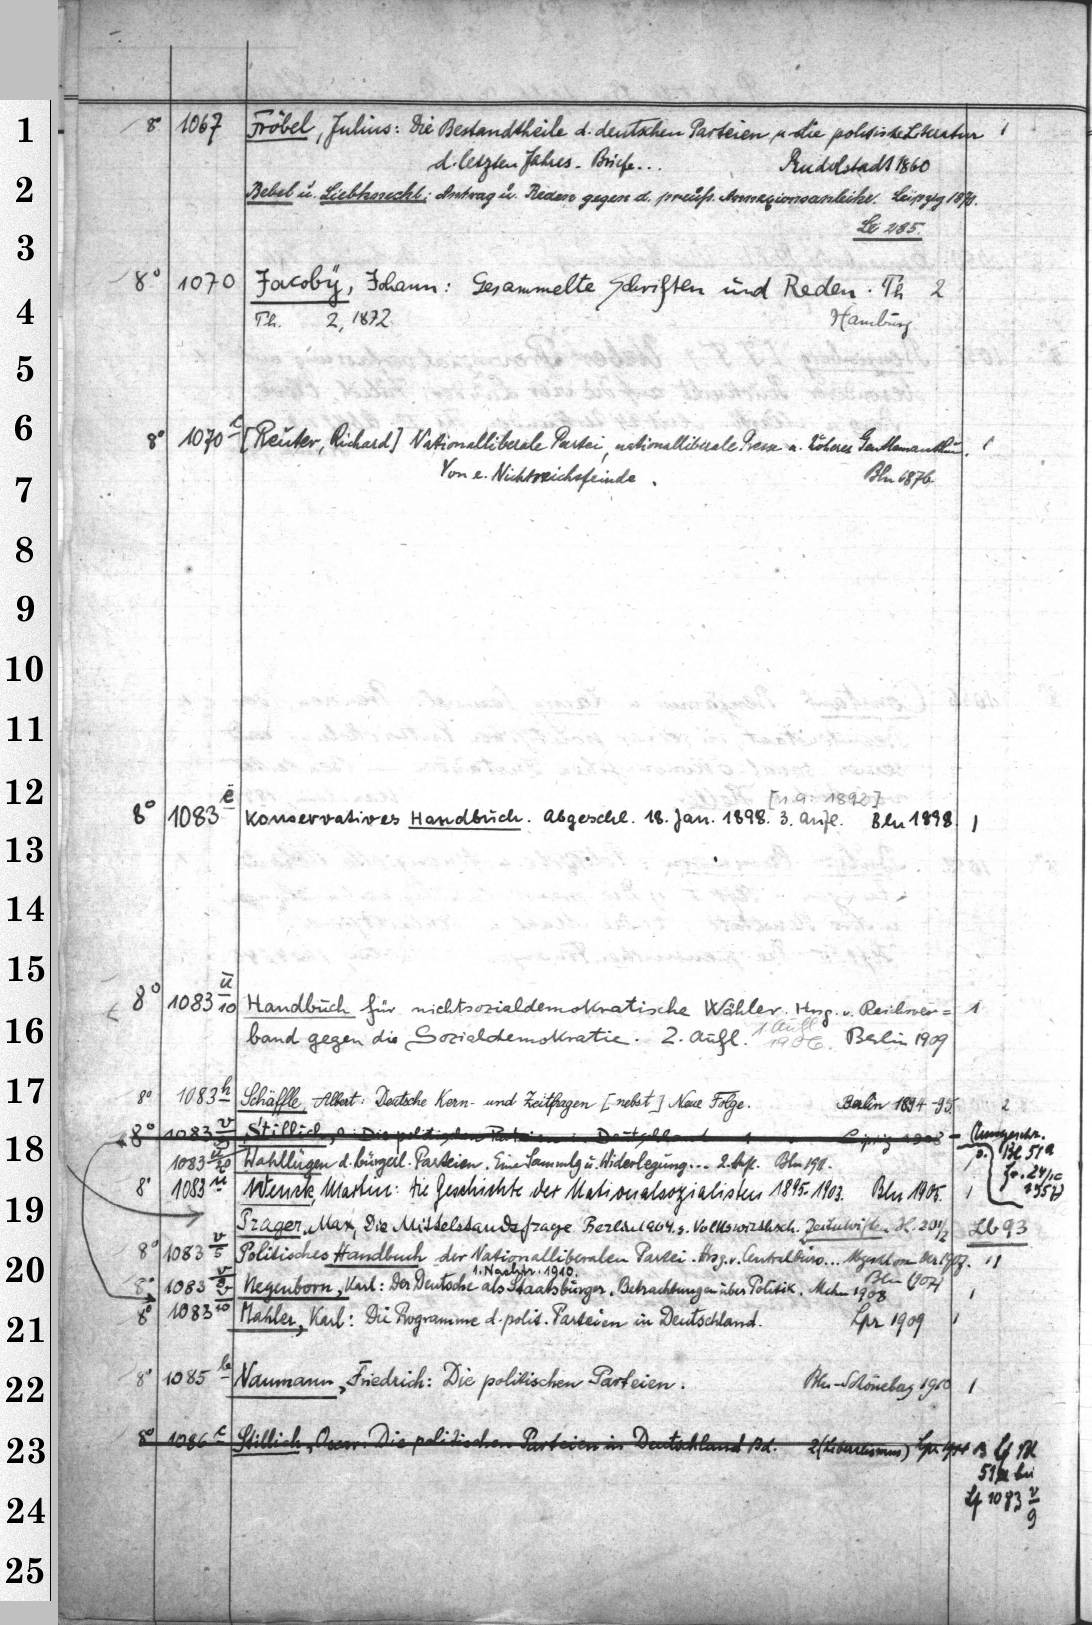 8° 1067 Fröbel, Julius: Die Bestandtheile d. deutschen Parteien u. die politische Literatur 1
d. letzten Jahres. Briefe... Rudolstadt 1860
Bebel u. Liebknecht: Antrag u. Reden gegen d. preuß. Annexionsanleihe. Leipzig
285.
8° 1070 Jacoby, Johann: Gesammelte Schriften und Reden. Th 2
Th. 2, 1872. Hamburg
8° 1070 c [Reuter, Richard] Nationalliberale Partei, nationalliberale Presse u. höheres Gentlemanthum. 1
Von e. Nichtreichsfeinde. Bln 1876.
[1. A: 1892]
8° 1083 e Konservatives Handbuch. Abgeschl. 18. Jan. 1898. 3. Aufl. Bln 1898. 1
8° 1083 u/10 Handbuch für nichtsozialdemokratische Wähler. Hrsg. v. Reichsver= 1
band gegen die Sozialdemokratie. 2. Aufl. 1 Aufl 1906. Berlin 1909
8° 1083 h Schäffle, Albert: Deutsche Kern- und Zeitfragen [nebst] Neue Folge. Berlin 1894-95. 2
8° 1083 v Stillich, Die politischen Parteien in Deutschland 1 Leipzig 1908
1083 u/20 Wahllügen d. bürgerl. Parteien. Eine Sammlg u. Widerlegung... 2. Aufl. Bln
8° 1083 u Wenck, Martin: Die Geschichte der Nationalsozialisten 1895-1903. Bln 1905. 1
Prager, Max, Die Mittelstandsfrage Berlin 1904. s. Volkswirthsch. Zeitschrift. H. 201/2 Lb 93
8° 1083 v/5 Politisches Handbuch der Nationalliberalen Partei. Hrsg. v. Centralbüro...
1. Nachtr. 1910. Bln 1907
8° 1083 v/9 Negenborn, Karl: Der Deutsche als Staatsbürger. Betrachtungen über Politik. 1908 1
8° 1083 Mahler, Karl: Die Programme d. polit. Parteien in Deutschland. Lpz 1909 1
8° 1085 b Naumann, Friedrich: Die politischen Parteien. Bln-Schöneberg 1910 1
8° 1086 c Stillich, Oscar: Die politischen Parteien in Deutschland Bd. 2 (Liberalismus) Lpz
bei
Lf 1083 v/9
1
2
3
4
5
6
7
8
9
10
11
12
13
14
15
16
17
18
19
20
21
22
23
24
25